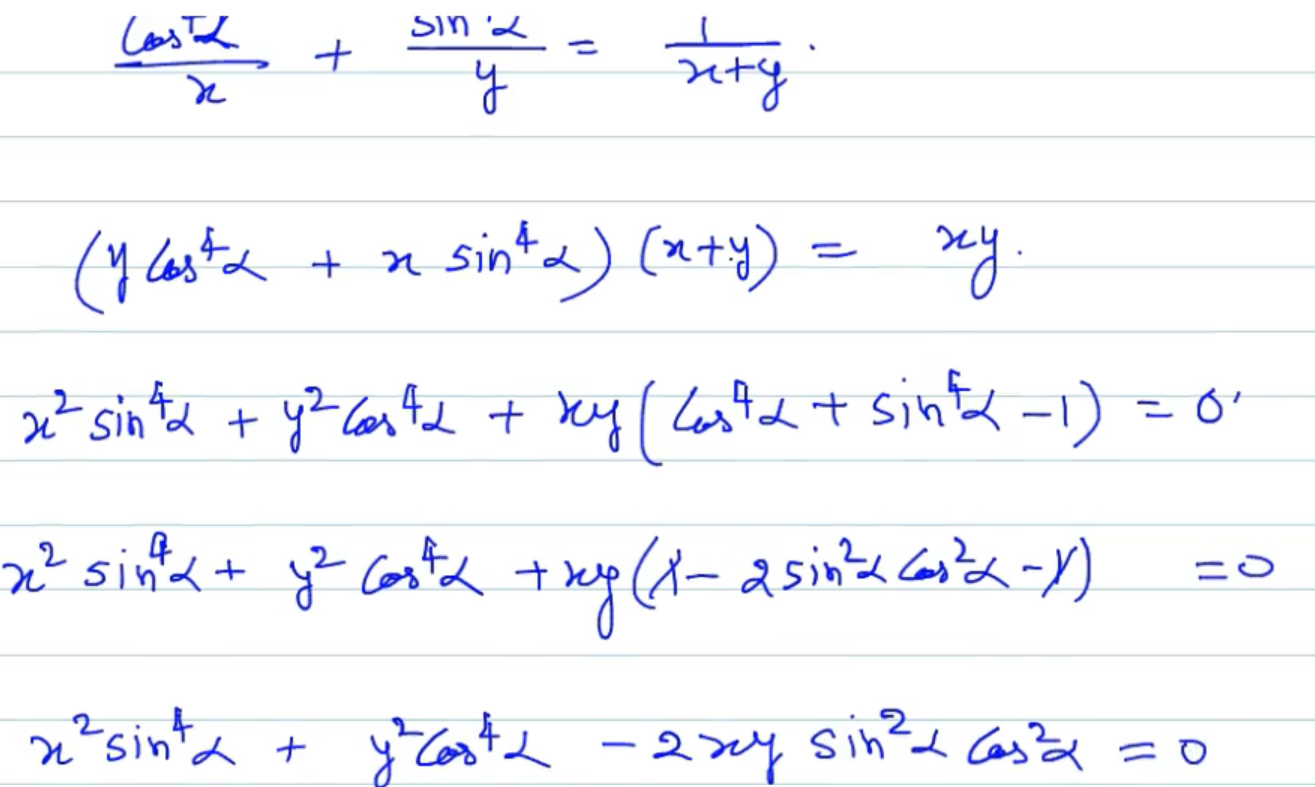 cos⁴α/x + sin⁴α/y = 1/(x+y).
(y cos⁴α + x sin⁴α) (x+y) = xy.
x² sin⁴α + y² cos⁴α + xy (cos⁴α + sin⁴α - 1) = 0
x² sin⁴α + y² cos⁴α + xy (1 - 2 sin²α cos²α - 1) = 0
x² sin⁴α + y² cos⁴α - 2xy sin²α cos²α = 0